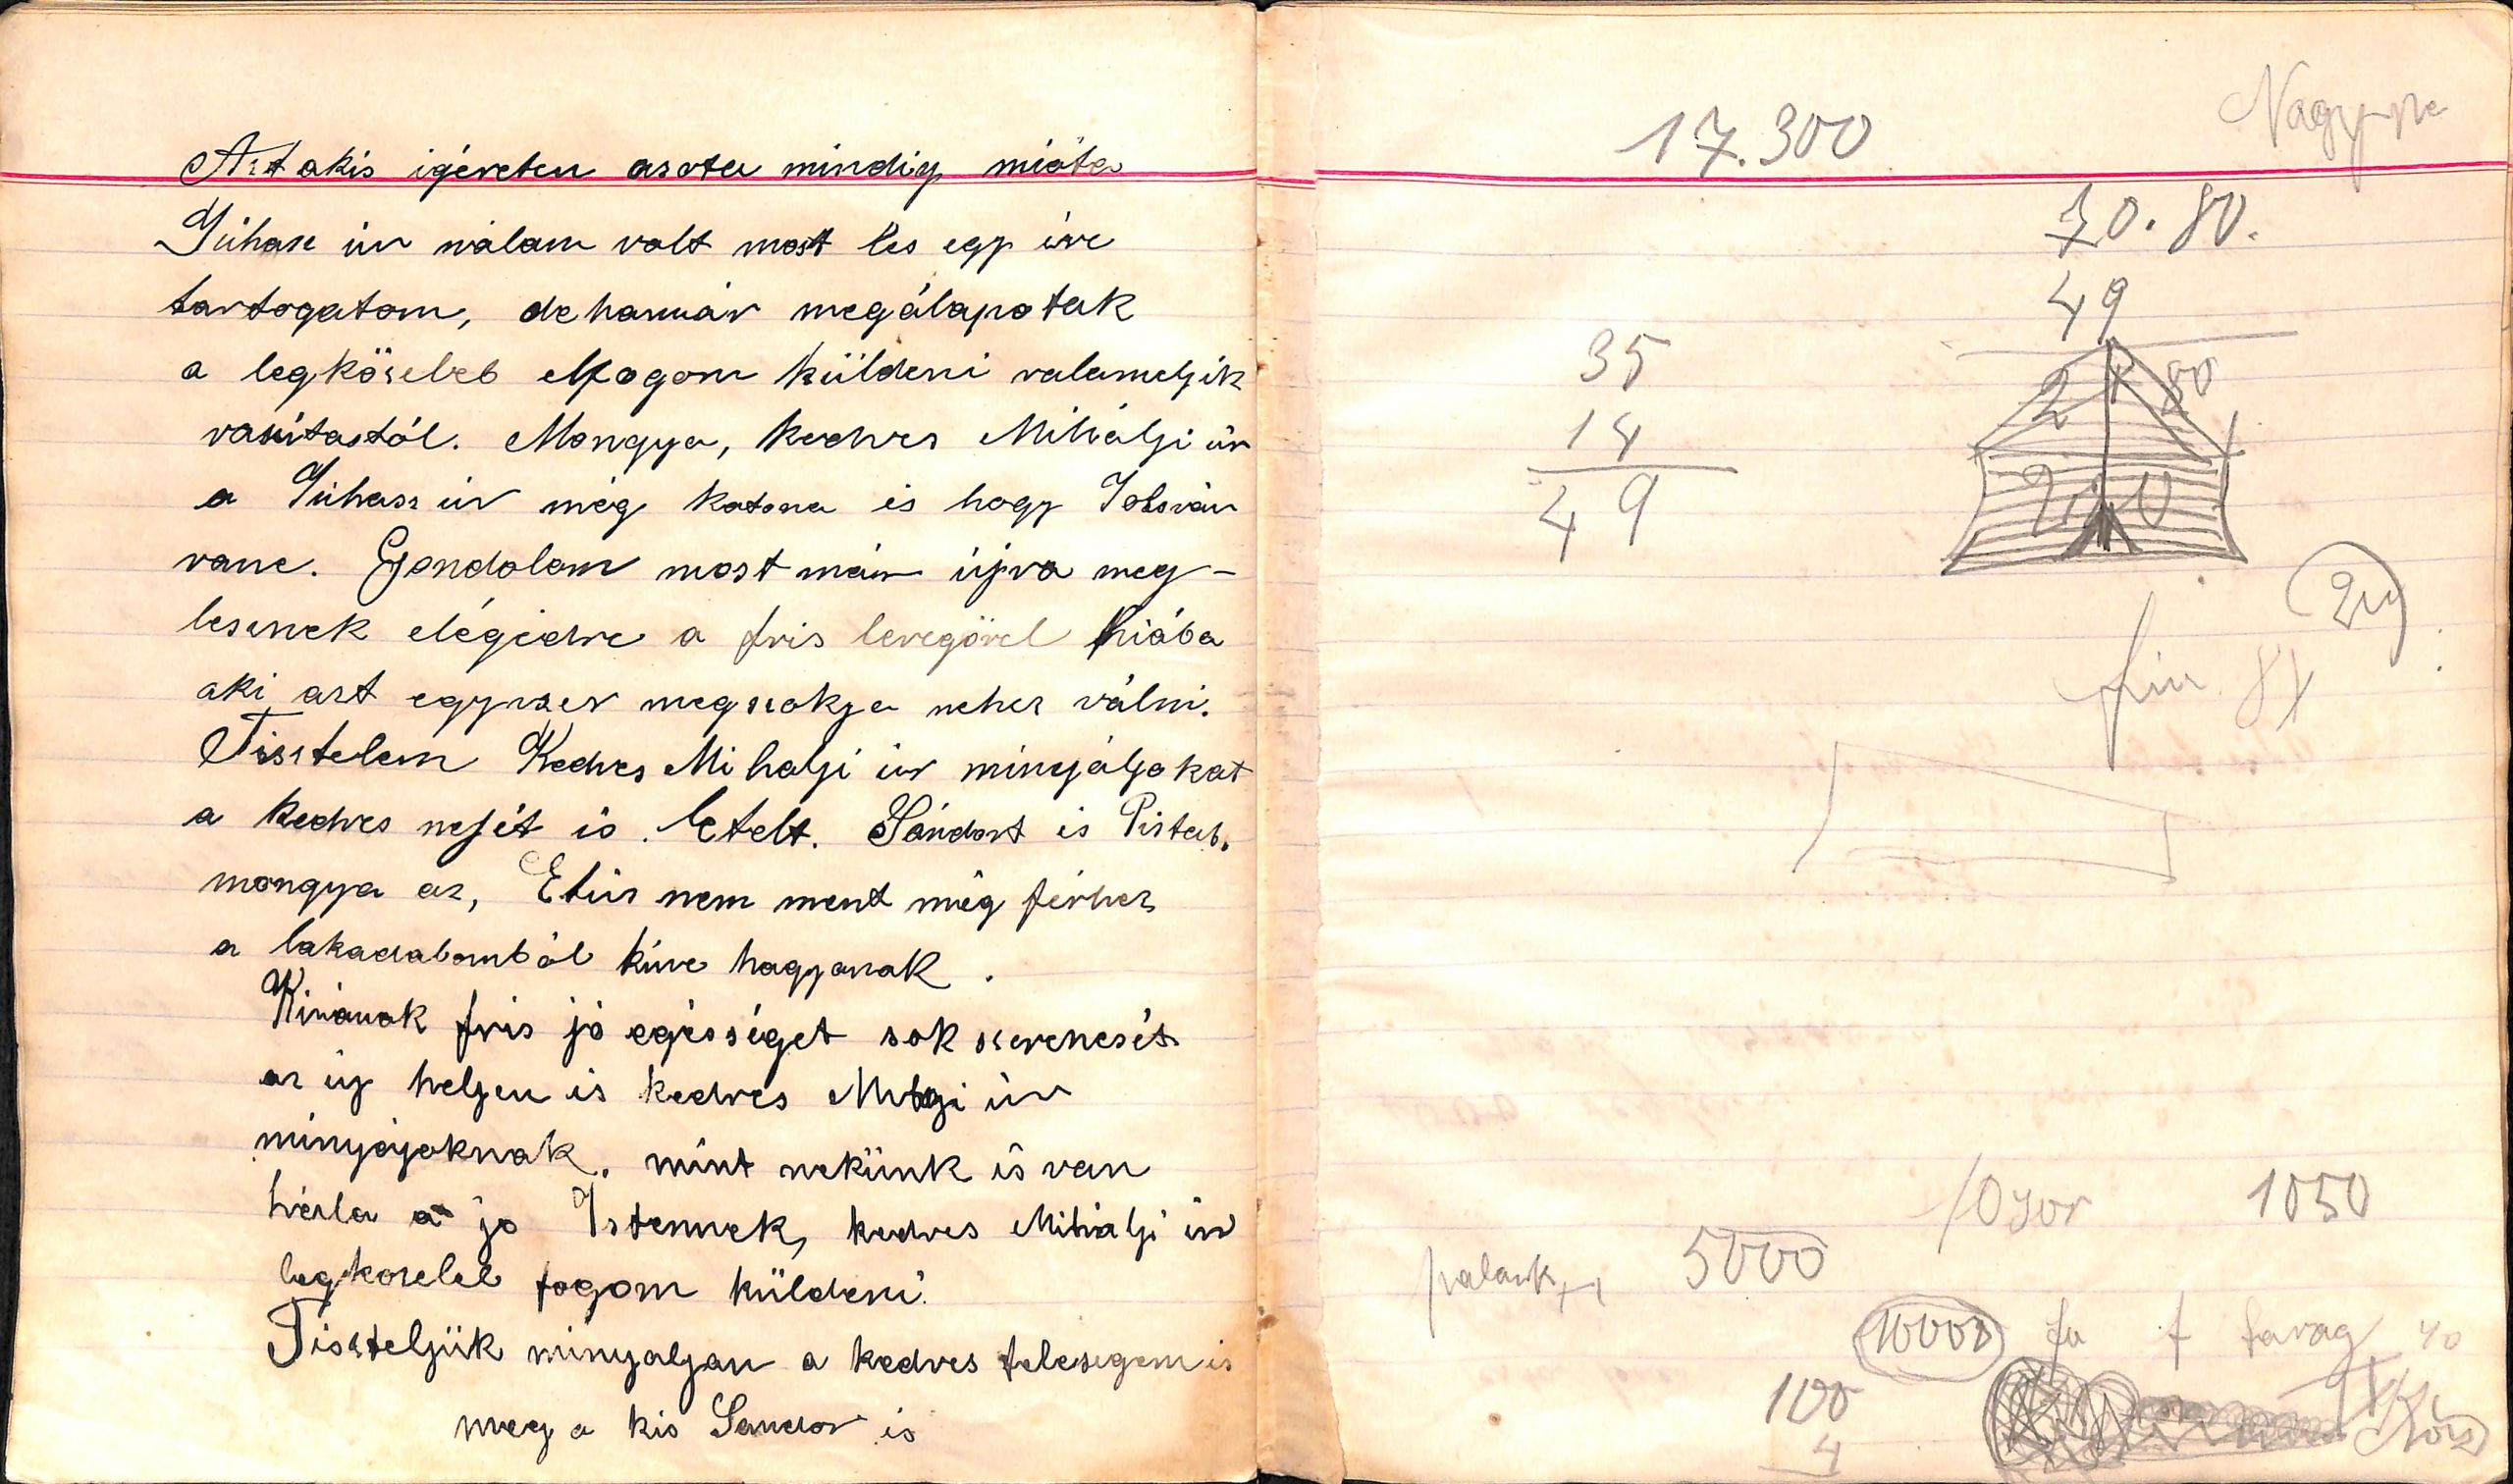 Azt akis igéretem asota mindig mióta
Juhasz úr nálam volt most les egy éve
tartogatom, de hamár megálapotak
a legközeleb elfogom küldeni valamelyik
vasutastól. Mongya, kedves Mihályi úr
a Juhasz úr még katona és hogy
vane. Gondolom most már újra meg-
lesznek elégedve a fris levegövel hiába
aki azt egyszer megszokja nehez válni.
Tisztelem Kedves Mihalyi úr minyájokat
a kedves nejét is. Etelt. Sándort is Pistat.
mongya az, Etus nem ment még férhez
a lakadalomból kive hagyanak.
Kivánok fris jó egésséget sok szerencsét
az uj helyen is kedves úr
minyájoknak. mint nekünk is van
hála a jo Istennek, kedves Mihályi úr
legkozeleb fogom küldeni.
Tiszteljük minyaljan a kedves felesegem is
meg a kis Sandor is
17.300
70.80.
49
35
14
49
80
fiu
84
1050
5000
palank
10000
farag 40
100
4